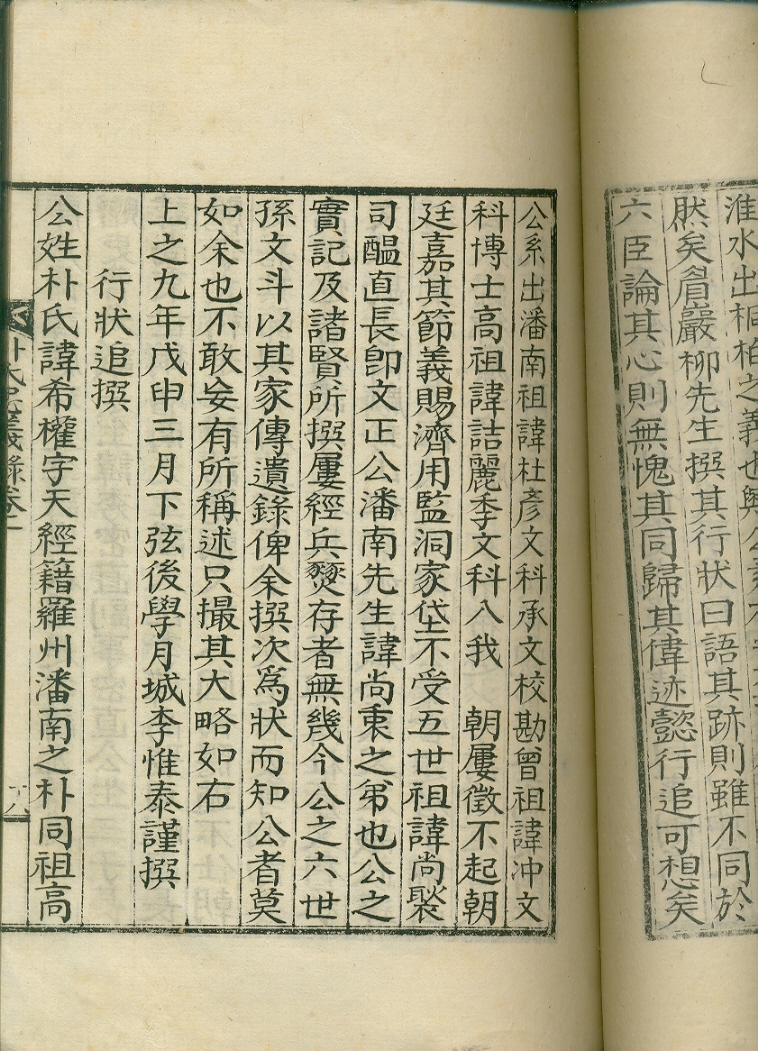 淮水出桐柏之義也
然矣眉巖柳先生撰其行狀曰語其跡則雖不同於
六臣論其心則無愧其同歸其偉迹懿行追可想矣
公系出潘南祖諱杜彦文科承文校勘曾祖諱冲文
科博士高祖諱詰麗季文科入我 朝屢徵不起朝
廷嘉其節義賜濟用監洞家垈不受五世祖諱尚褧
司醞直長卽文正公潘南先生諱尚衷之弟也公之
實記及諸賢所撰屢經兵燹存者無幾今公之六世
孫文斗以其家傳遺錄俾余撰次爲狀而知公者莫
如余也不敢妄有所稱述只撮其大略如右
上之九年戊申三月下弦後學月城李惟泰謹撰
行狀追撰
公姓朴氏諱希權字天經籍羅州潘南之朴同祖高